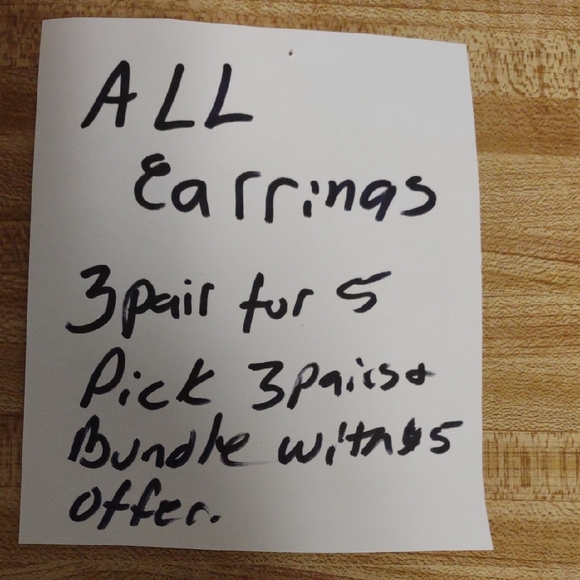 ALL
Earrings
3pair for 5
Pick 3pairs+
Bundle with $5
offer.